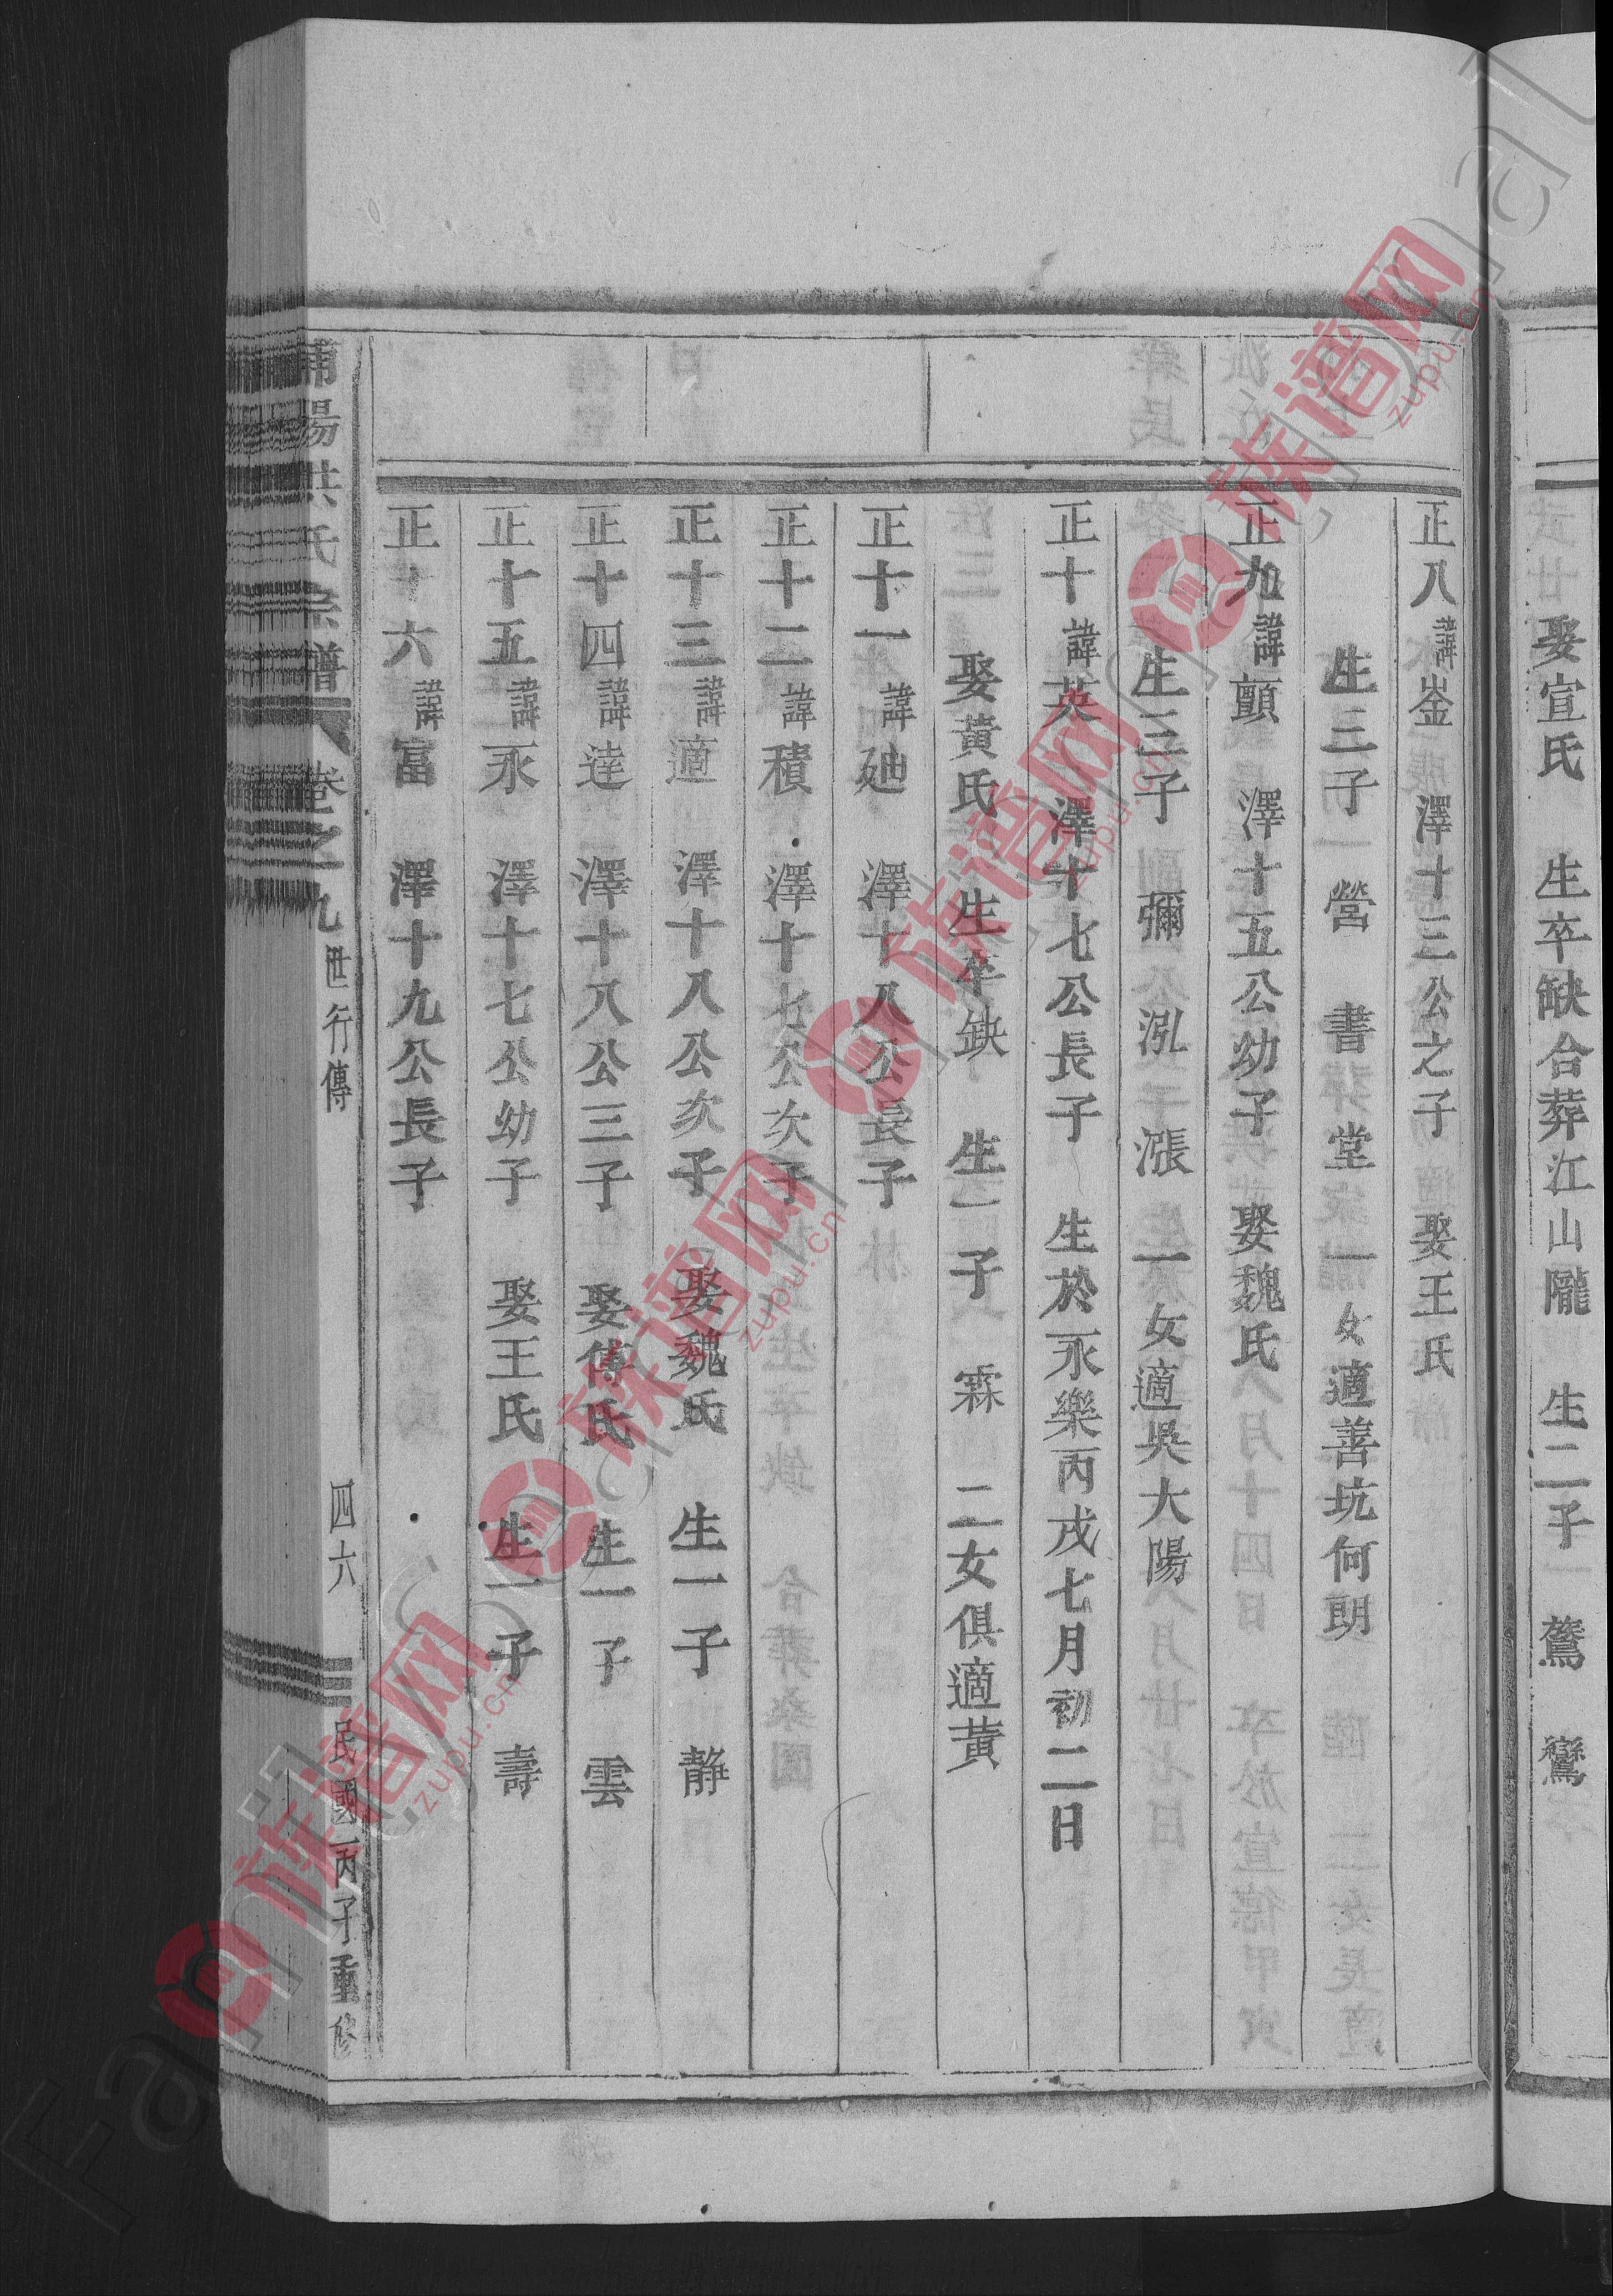 娶宣氏　生卒缺合葬江山隴　生二子　鶿　鸞
正八諱崟　澤十三公之子　娶王氏
生三子　營　書　堂　一女適善坑何朗
正九諱顫　澤十五公幼子　娶魏氏
生三子　彌　泓　漲　一女適吳大陽
正十諱英　澤十七公長子　生於永樂丙戌七月初二日
娶黃氏　生卒缺　生一子　霖　二女俱適黃
正十一諱廸　澤十八公長子
正十二諱積　澤十七公次子
正十三諱適　澤十八公次子　娶魏氏　生一子　靜
正十四諱達　澤十八公三子　娶傅氏　生一子　雲
正十五諱永　澤十七公幼子　娶王氏　生一子　壽
正十六諱富　澤十九公長子
陽洪氏宗譜　卷之九　世行傳　四六　民國丙子重修
族谱网
zupu.cn